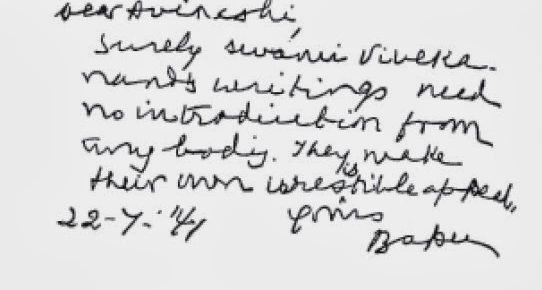 Dear Avineshi,
Surely swami Viveka-
nand's writings need
no introduction from
any body. They make
their own irresistible appeal.
22-7-'41 Yours
Bapu